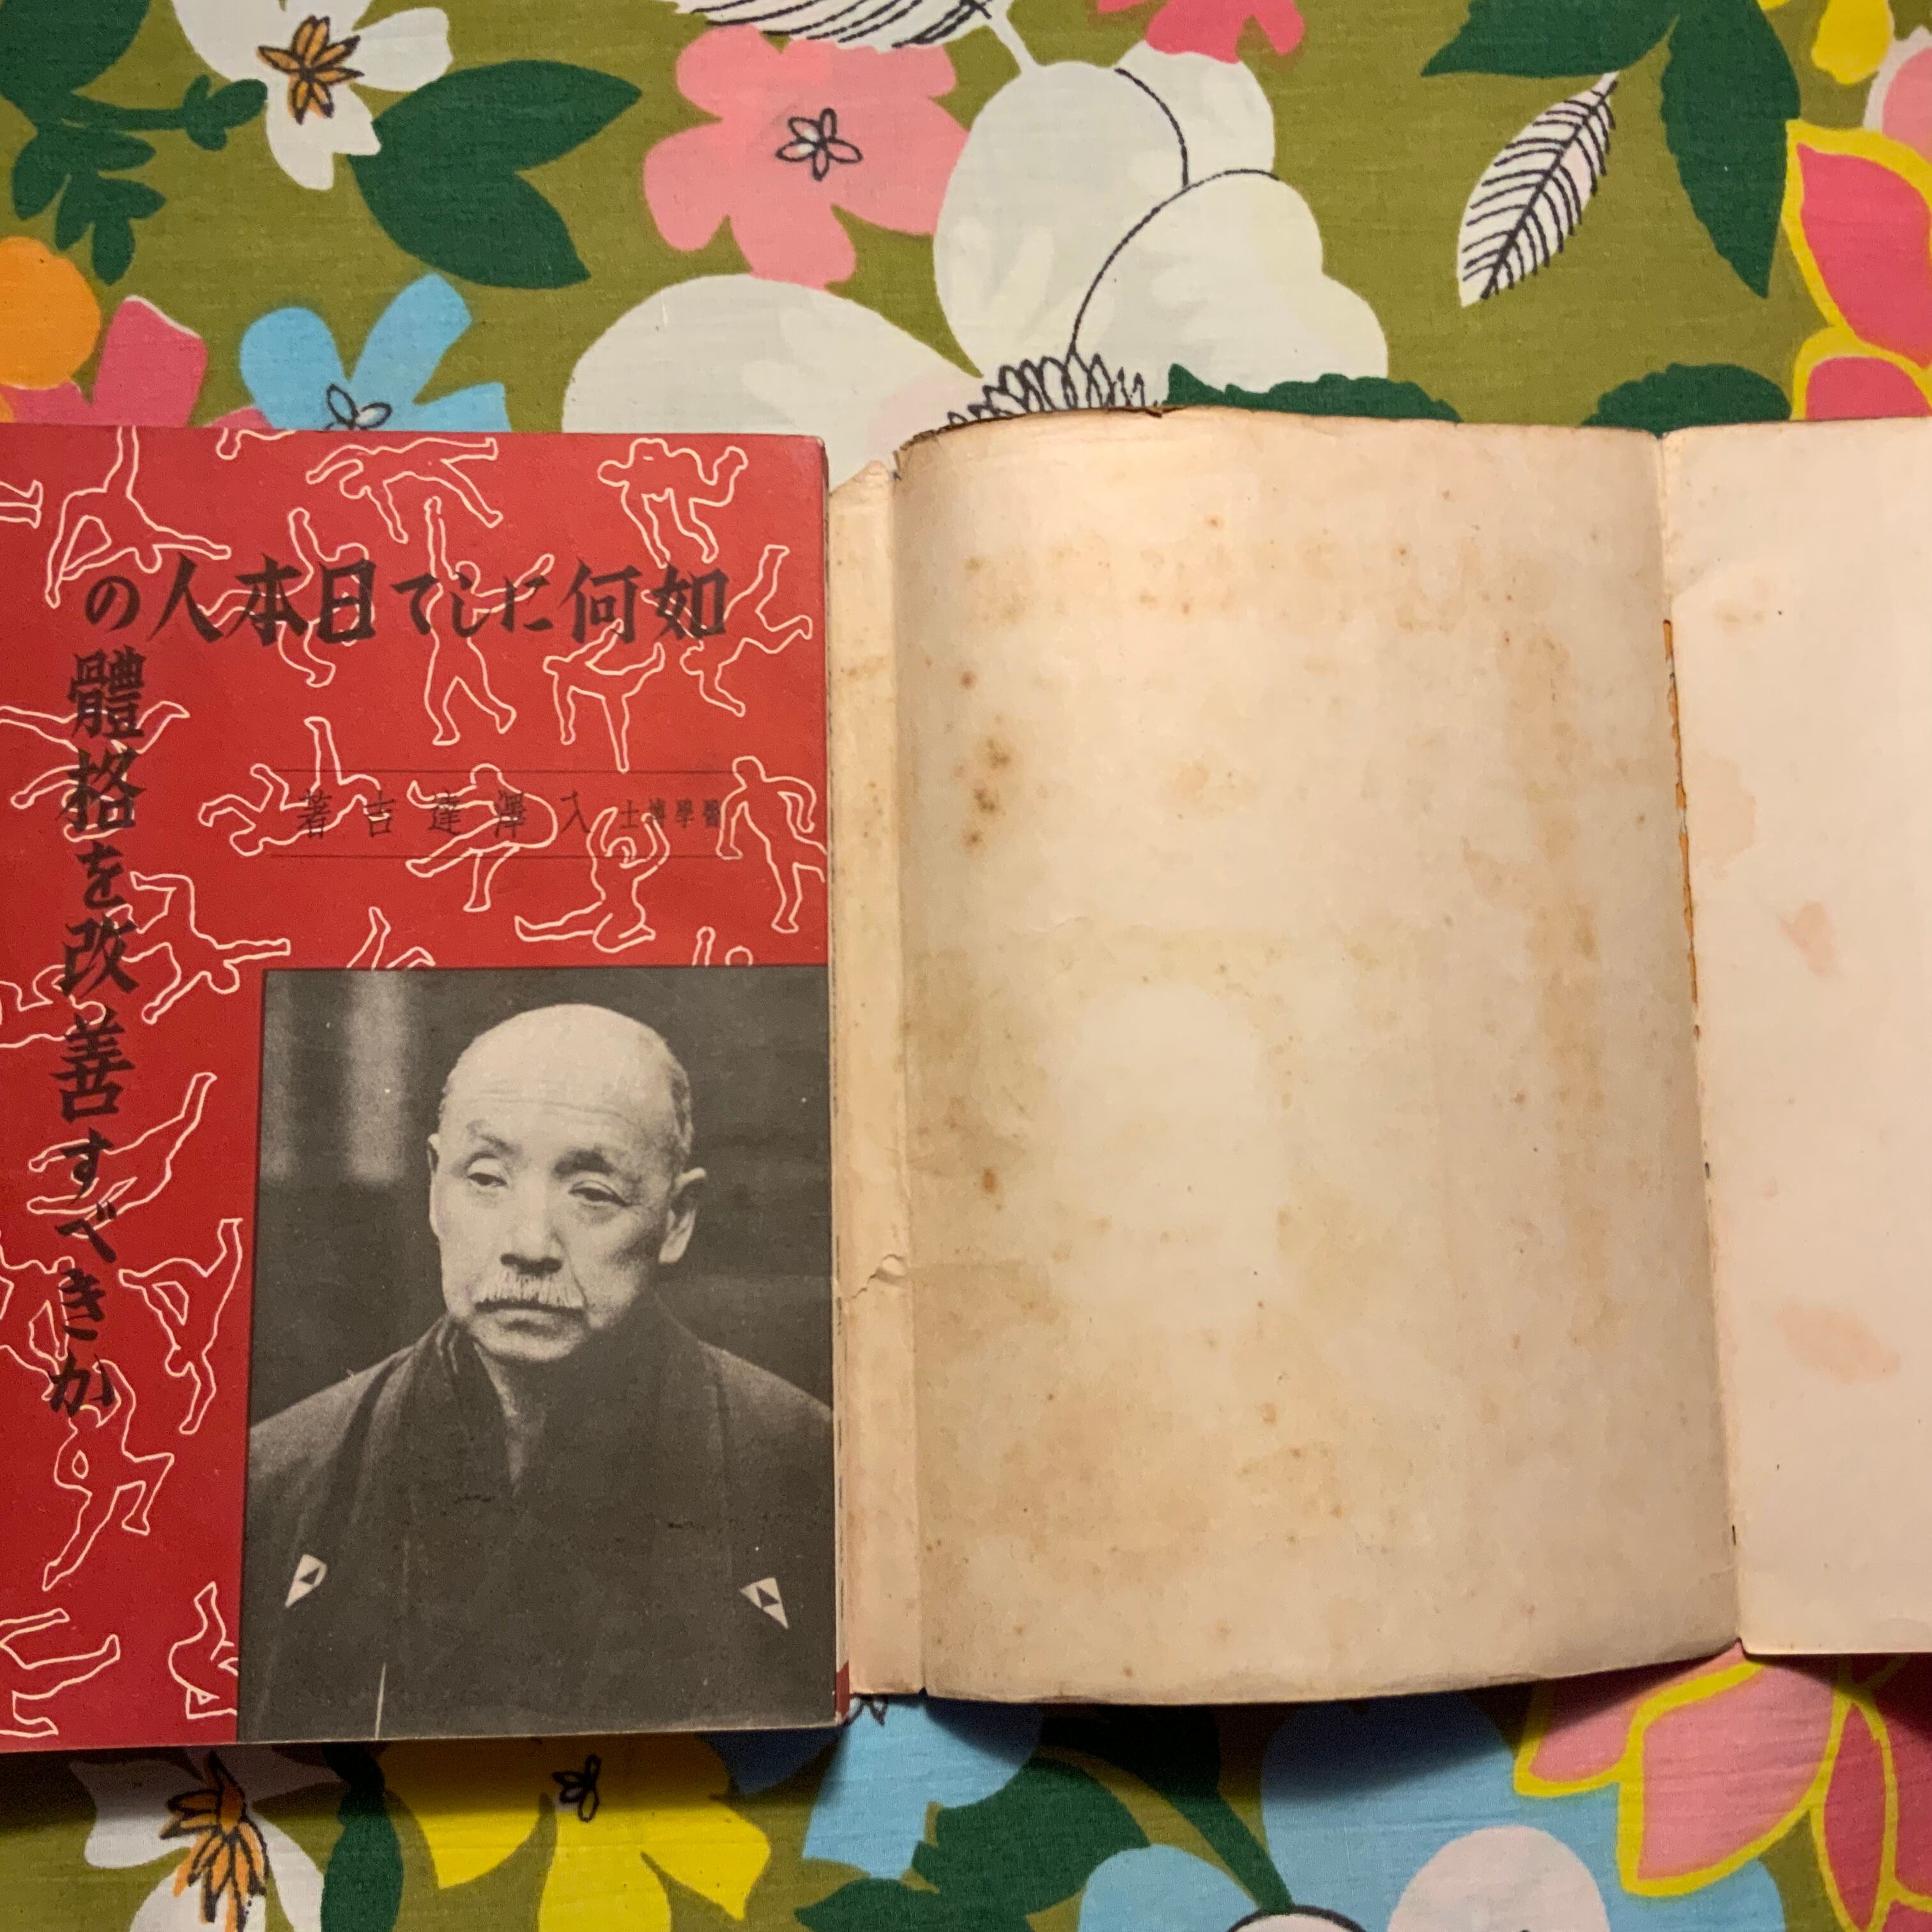 如何にして日本人の
體格を改善すべきか
醫學博士 入澤達吉著